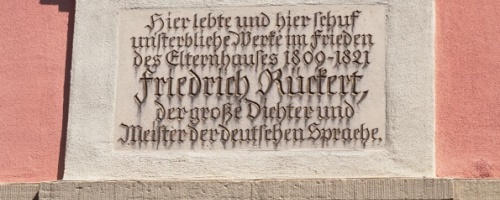 Hier lebte und hier schuf
unsterbliche Werke im Frieden
des Elternhauses 1809-1821
Friedrich Rückert,
der große Dichter und
Meister der deutschen Sprache.